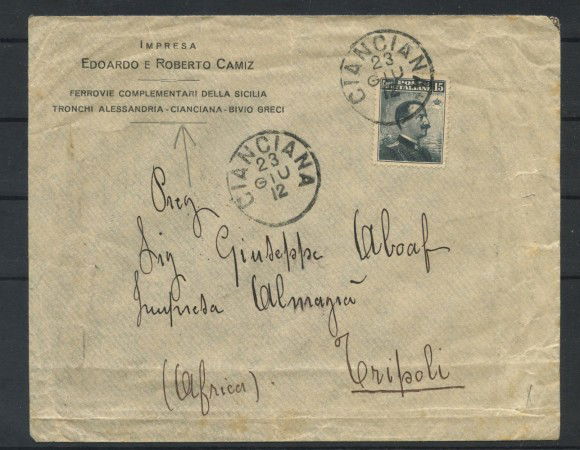 IMPRESA
EDOARDO E ROBERTO CAMIZ
FERROVIE COMPLEMENTARI DELLA SICILIA
TRONCHI ALESSANDRIA - CIANCIANA - BIVIO GRECI
CIANCIANA
23
GIU
12
POSTE
ITALIANE
15
CIANCIANA
23
GIU
12
Preg
Sig Giuseppe Aboaf
Impresa Almagià
(Africa). Tripoli